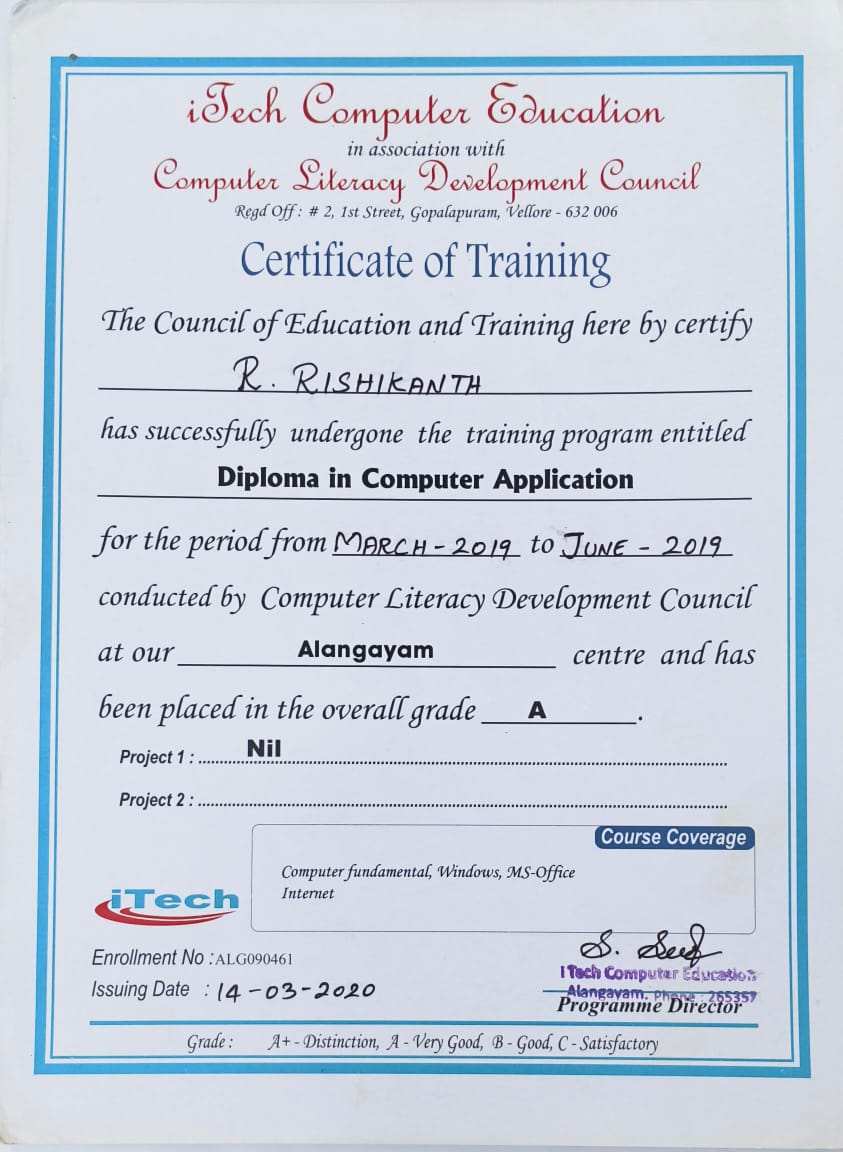 iTech Computer Education
in association with
Computer Literacy Development Council
Regd Off : # 2, 1st Street, Gopalapuram, Vellore - 632 006
Certificate of Training
The Council of Education and Training here by certify
R. RISHIKANTH
has successfully undergone the training program entitled
Diploma in Computer Application
for the period from MARCH - 2019 to JUNE - 2019
conducted by Computer Literacy Development Council
at our Alangayam centre and has
been placed in the overall grade A.
Project 1 : Nil
Project 2 :
Course Coverage
Computer fundamental, Windows, MS-Office
Internet
iTech
Enrollment No : ALG090461
Issuing Date : 14-03-2020
S.
I Tech Computer Education
Alangayam. Phone : 265357
Programme Director
Grade : A+ - Distinction, A - Very Good, B - Good, C - Satisfactory